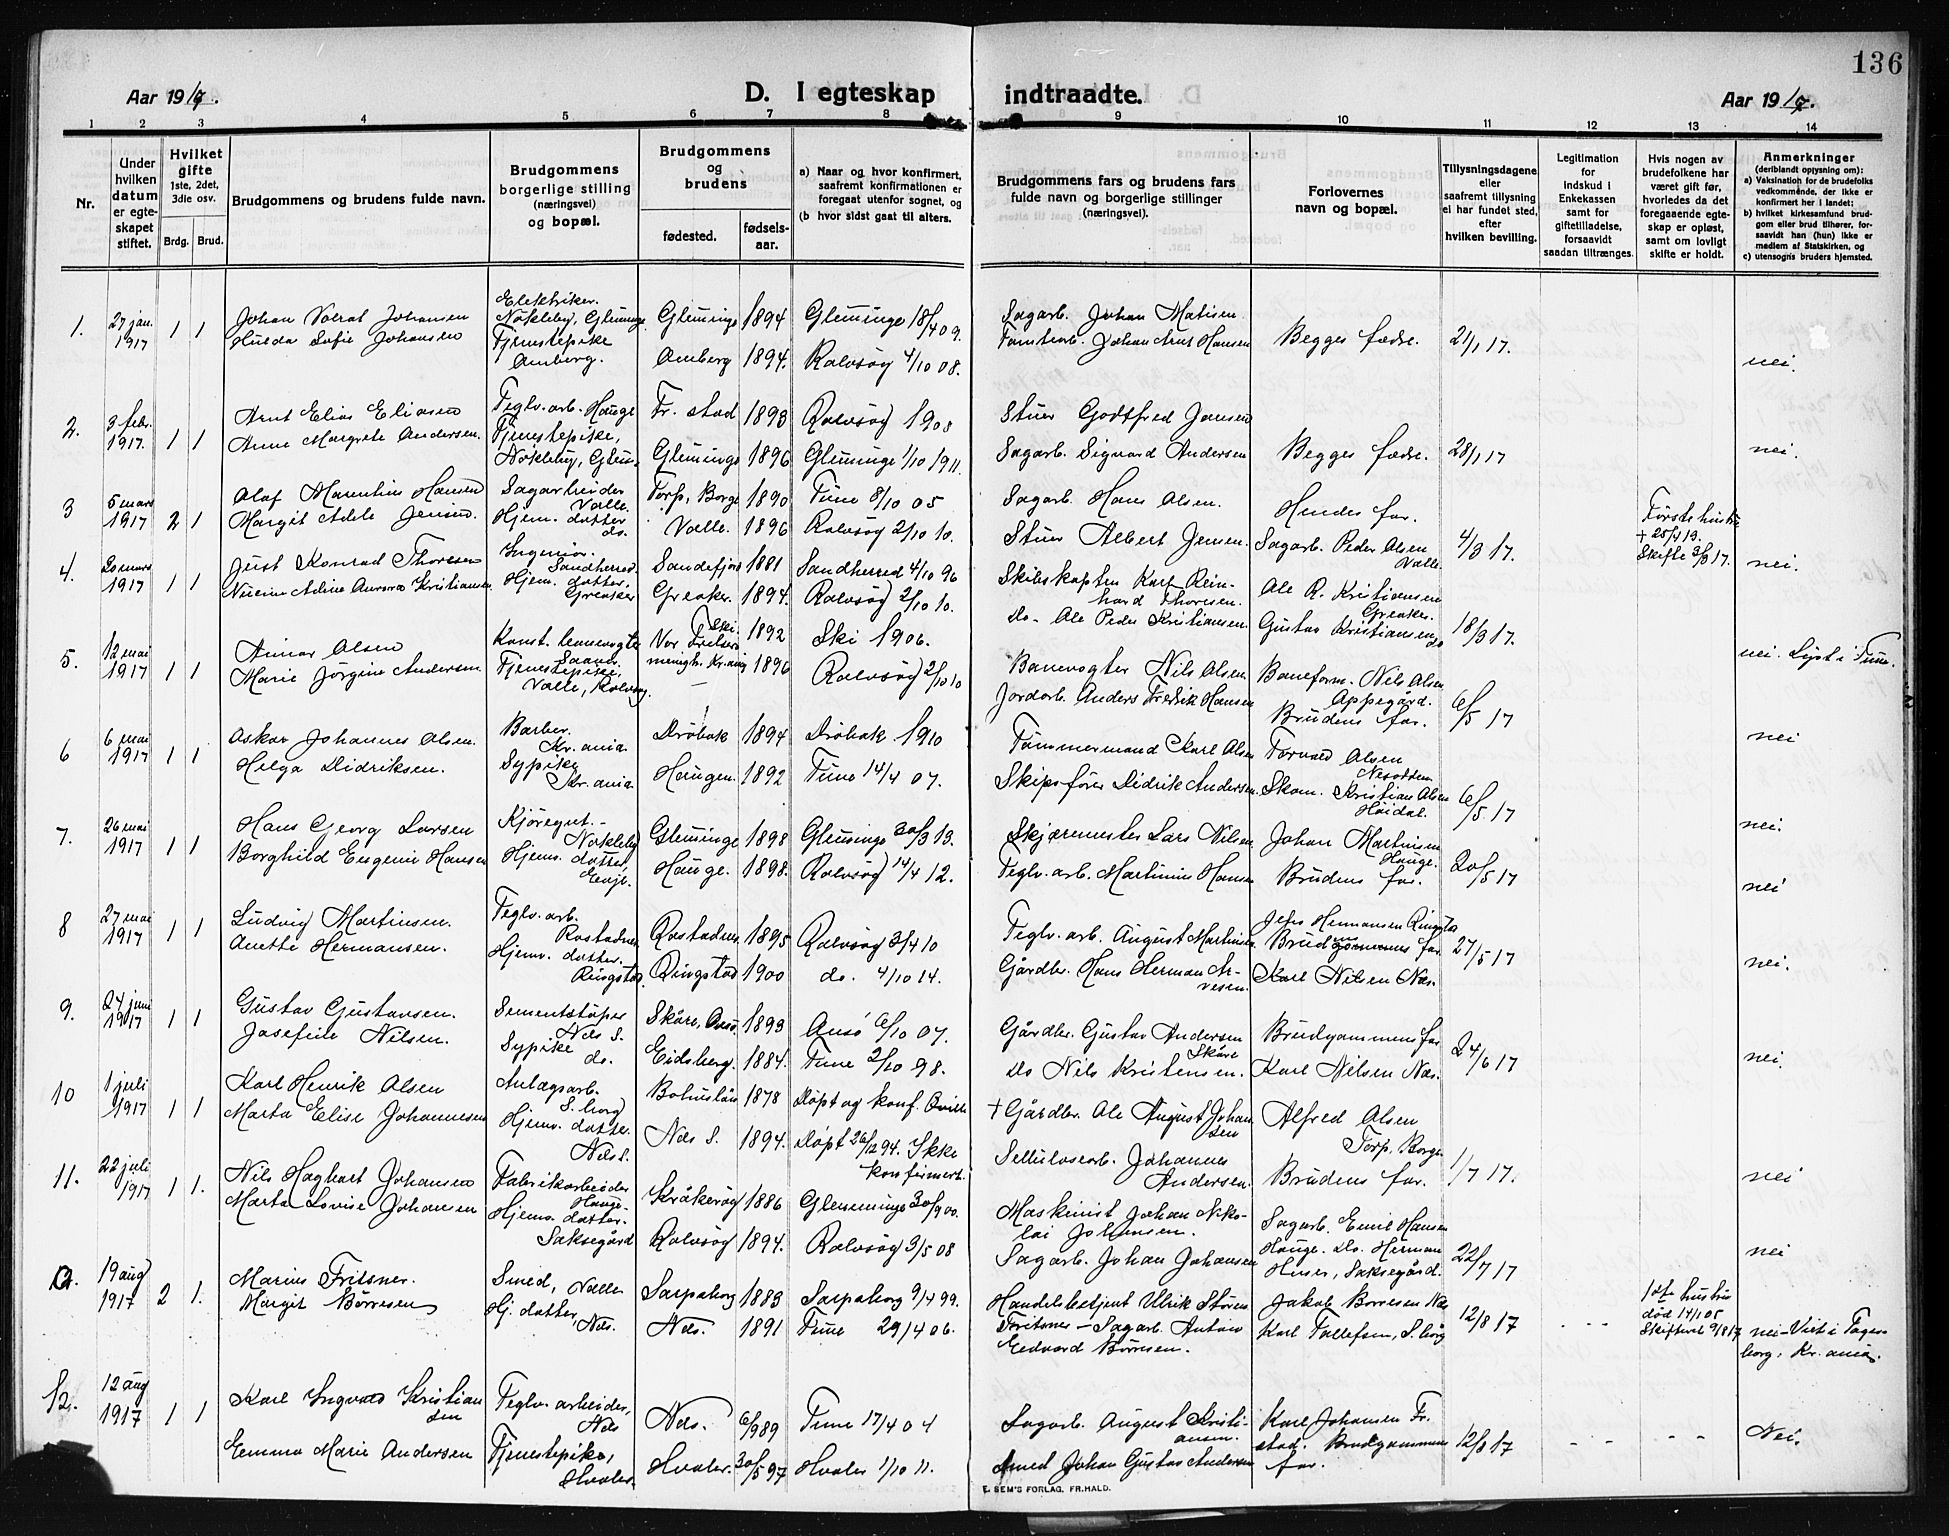 136
Aar 1917.
D. I egteskap indtraadte.
Aar 1917.
1 2 3 4 5 6 7 8 9 10 11 12 13 14
Nr.
Under hvilken datum er egteskapet stiftet.
Hvilket gifte 1ste, 2det, 3die osv.
Brdg. Brud.
Brudgommens og brudens fulde navn.
Brudgommens borgerlige stilling (næringsvei) og bopæl.
Brudgommens og brudens
fødested.
fødselsaar.
a) Naar og hvor konfirmert, saafremt konfirmationen er foregaat utenfor sognet, og
(b hvor sidst gaat til alters.
Brudgommens fars og brudens fars fulde navn og borgerlige stillinger (næringsvei).
Forlovernes navn og bopæl.
Tillysningsdagene eller saafremt tillysning ei har fundet sted, efter hvilken bevilling.
Legitimation for indskud i Enkekassen samt for giftetilladelse, forsaavidt saadan tiltrænges.
Hvis nogen av brudefolkene har været gift før, hvorledes da det foregaaende egteskap er opløst, samt om lovligt skifte er holdt.
Anmerkninger (deriblandt oplysning om):
a) Vaksination for de brudefolks vedkommende, der ikke er konfirmert her i landet;
b) hvilket kirkesamfund brudgom eller brud tilhører, forsaavidt han (hun) ikke er medlem af Statskirken, og
c) utensogns bruders hjemsted.
1. 27 jan. 1917 1 1
Johan Volrat Johansen
Hulda Sofie Johansen
Elektriker. Nøkleby, Glemminge
Tjenestepike Amberg.
Glemminge 1894 Glemminge 18/4 09.
Amberg 1894. Rolvsøy 4/10 08.
Sagarb. Johan Matisen
Tomtearb. Johan Arnt Hansen
Begges fædre. 21/1 17. nei.
2. 3 febr. 1917. 1 1
Arnt Elias Eliasen
Anne Margrete Andersen.
Teglv. arb. Hauge
Tjenestepike, Nøkleby, Glem.
Fr. stad 1893 Rolvsøy 1908
Glemminge 1896 Glemminge 1/10 1911.
Stuer Godtfred Jansen
Sagarb. Sigvard Andersen
Begges fædre. 28/1 17 nei.
3 5 mars 1917 2 1
Olaf Marentius Hansen
Margit Adele Jensen.
Sagarbeider Valle.
Hjem. datter do.
Torp, Borge 1890 Tune 8/10 05
Valle. 1896 Rolvsøy 2/10 10.
Sagarb. Hans Olsen.
Stuer Albert Jensen.
Hendes far.
Sagarb. Peder Olsen Valle.
4/3 17.
Første hustru + 25/4 13. Skifte 3/3 17.
nei.
4. 20 mars 1917 1 1
Just Konrad Thoresen
Adine Aurora Kristiansen
Ingeniør. Sandherred.
Hjem. datter. Greaker
Sandefjord 1881 Sandherred 4/10 96
Greaker. 1894. Rolvsøy 2/10 10.
Skibskaptein Karl Reinhard Thoresen.
do. Ole Peder Kristiansen.
Ole R. Kristiansen Greaker.
Gustav Kristiansen do
18/3 17.
5. 12 mai 1917 1 1
Olsen
Marie Jørgine Andersen
Tjenestepike, Valle, Rolvsøy.
Ski. 1892 Ski 1906.
Vor Frelsers menigh. Kr.ania 1896 Rolvsøy 2/10 10
Banevogter Nils Olsen
Jordarb. Anders Fredrik Hansen
Baneform. Nils Olsen Oppegård.
Brudens far.
6/5 17
nei. Lyst i Tune.
6 6 mai 1917 1 1
Oskar Johannes Olsen.
Helga Didriksen.
Barber. Kr.ania
Sypike Kr.ania
Drøbak 1894 Drøbak 1910
Haugen. 1892 Tune 14/4 07.
Tømmermand Karl Olsen
Skipsfører Didrik Andersen.
Torvald Olsen Nesodden
Skom. Kristian Olsen Høidal.
6/5 17
nei
7. 26 mai 1917 1 1
Hans Georg Larsen
Borghild Eugenie Hansen
Kjøregut. - Nøkleby
Hjem. datter, Evje.
Glemminge 1898 Glemminge 30/3 13.
Hauge. 1898. Rolvsøy 14/4 12.
Skjæremester Lars Nilsen
Teglv. arb. Martinius Hansen
Johan Martinsen Hauge.
Brudens far.
20/5 17
nei.
8 27 mai 1917 1 1
Ludvig Martinsen.
Anette Hermansen.
Teglv. arb. Rostadnes
Hjem. datter. Ringstad
Rostadnes 1895 Rolvsøy 3/4 10
Ringstad 1900 do. 4/10 14.
Teglv. arb. August Martinsen
Gårdbr. Hans Herman Arvesen.
Hermansen Ringstad
Brudgommens far
Karl Nilsen Næs.
27/5 17
nei
9. 24 juni 1917 1 1
Gustav Gustavsen.
Josefine Nilsen.
Sementstøper Næs S.
Sypike do.
Skåre, Onsø. 1893 Onsø 6/10 07.
Eidsberg. 1884. Tune 2/10 98.
Gårdbr. Gustav Andersen Skåre
Do Nils Kristensen.
Brudgommens far
Karl Nilsen Næs.
24/6 17
nei.
10 1 juli 1917 1 1
Karl Henrik Olsen
Marta Elise Johannesen
Anlægsarb. S.borg
Hjem. datter. Næs S.
Bohuslän 1878 Døpt og konf. Qville
Næs S. 1894. Døpt 26/12 94. Ikke konfirmert.
+ Gårdbr. Ole August Johansen
Sellulosearb. Johannes Andersen.
Alfred Olsen Torp, Borge
Brudens far.
1/7 17.
nei.
11. 22 juli 1917 1 1.
Nils Hagbart Johansen
Marta Lovise Johansen
Fabrikarbeider Hauge
Hjem. datter. Saksegård
Kråkerøy 1886 Glemminge 30/9 00.
Rolvsøy 1894. Rolvsøy 3/5 08
Maskinist Johan Nikolai Johansen.
Sagarb. Johan Johansen
Sagarb. Emil Hansen Hauge. Do. Herman Huser, Saksegård.
22/7 17
nei
12. 19 aug 1917 2 1.
Marius Fritsner.
Margit Børresen
Smed, Valle
Hj. datter, Næs.
Sarpsborg 1883 Sarpsborg 9/4 99.
Næs. 1891 Tune 29/4 06.
Handelsbetjent Ulrik Fritsner - Sagarb. Anton Edvard Børresen.
Jakob Børresen Næs
Karl Tollefsen, S.borg
12/8 17
- - -
1ste hustru død 14/1 05 Skiftevet 9/8 17
nei - Viet i Fagerborg, Kr.ania.
12. 12 aug 1917 1 1
Karl Ingvald Kristiansen
Emma Marie Andersen
Teglv. arbeider, Næs
Tjenestepike, Hvaler.
Næs. 6/9 89 Tune 17/4 04
Hvaler. 30/5 97 Hvaler 1/10 11.
Sagarb. August Kristiansen.
Smed Johan Gustav Andersen
Karl Johansen Fr.stad. Brudgommens far.
12/8 17
- - - -
Nei.
E. SEM'S FORLAG, FR.HALD.